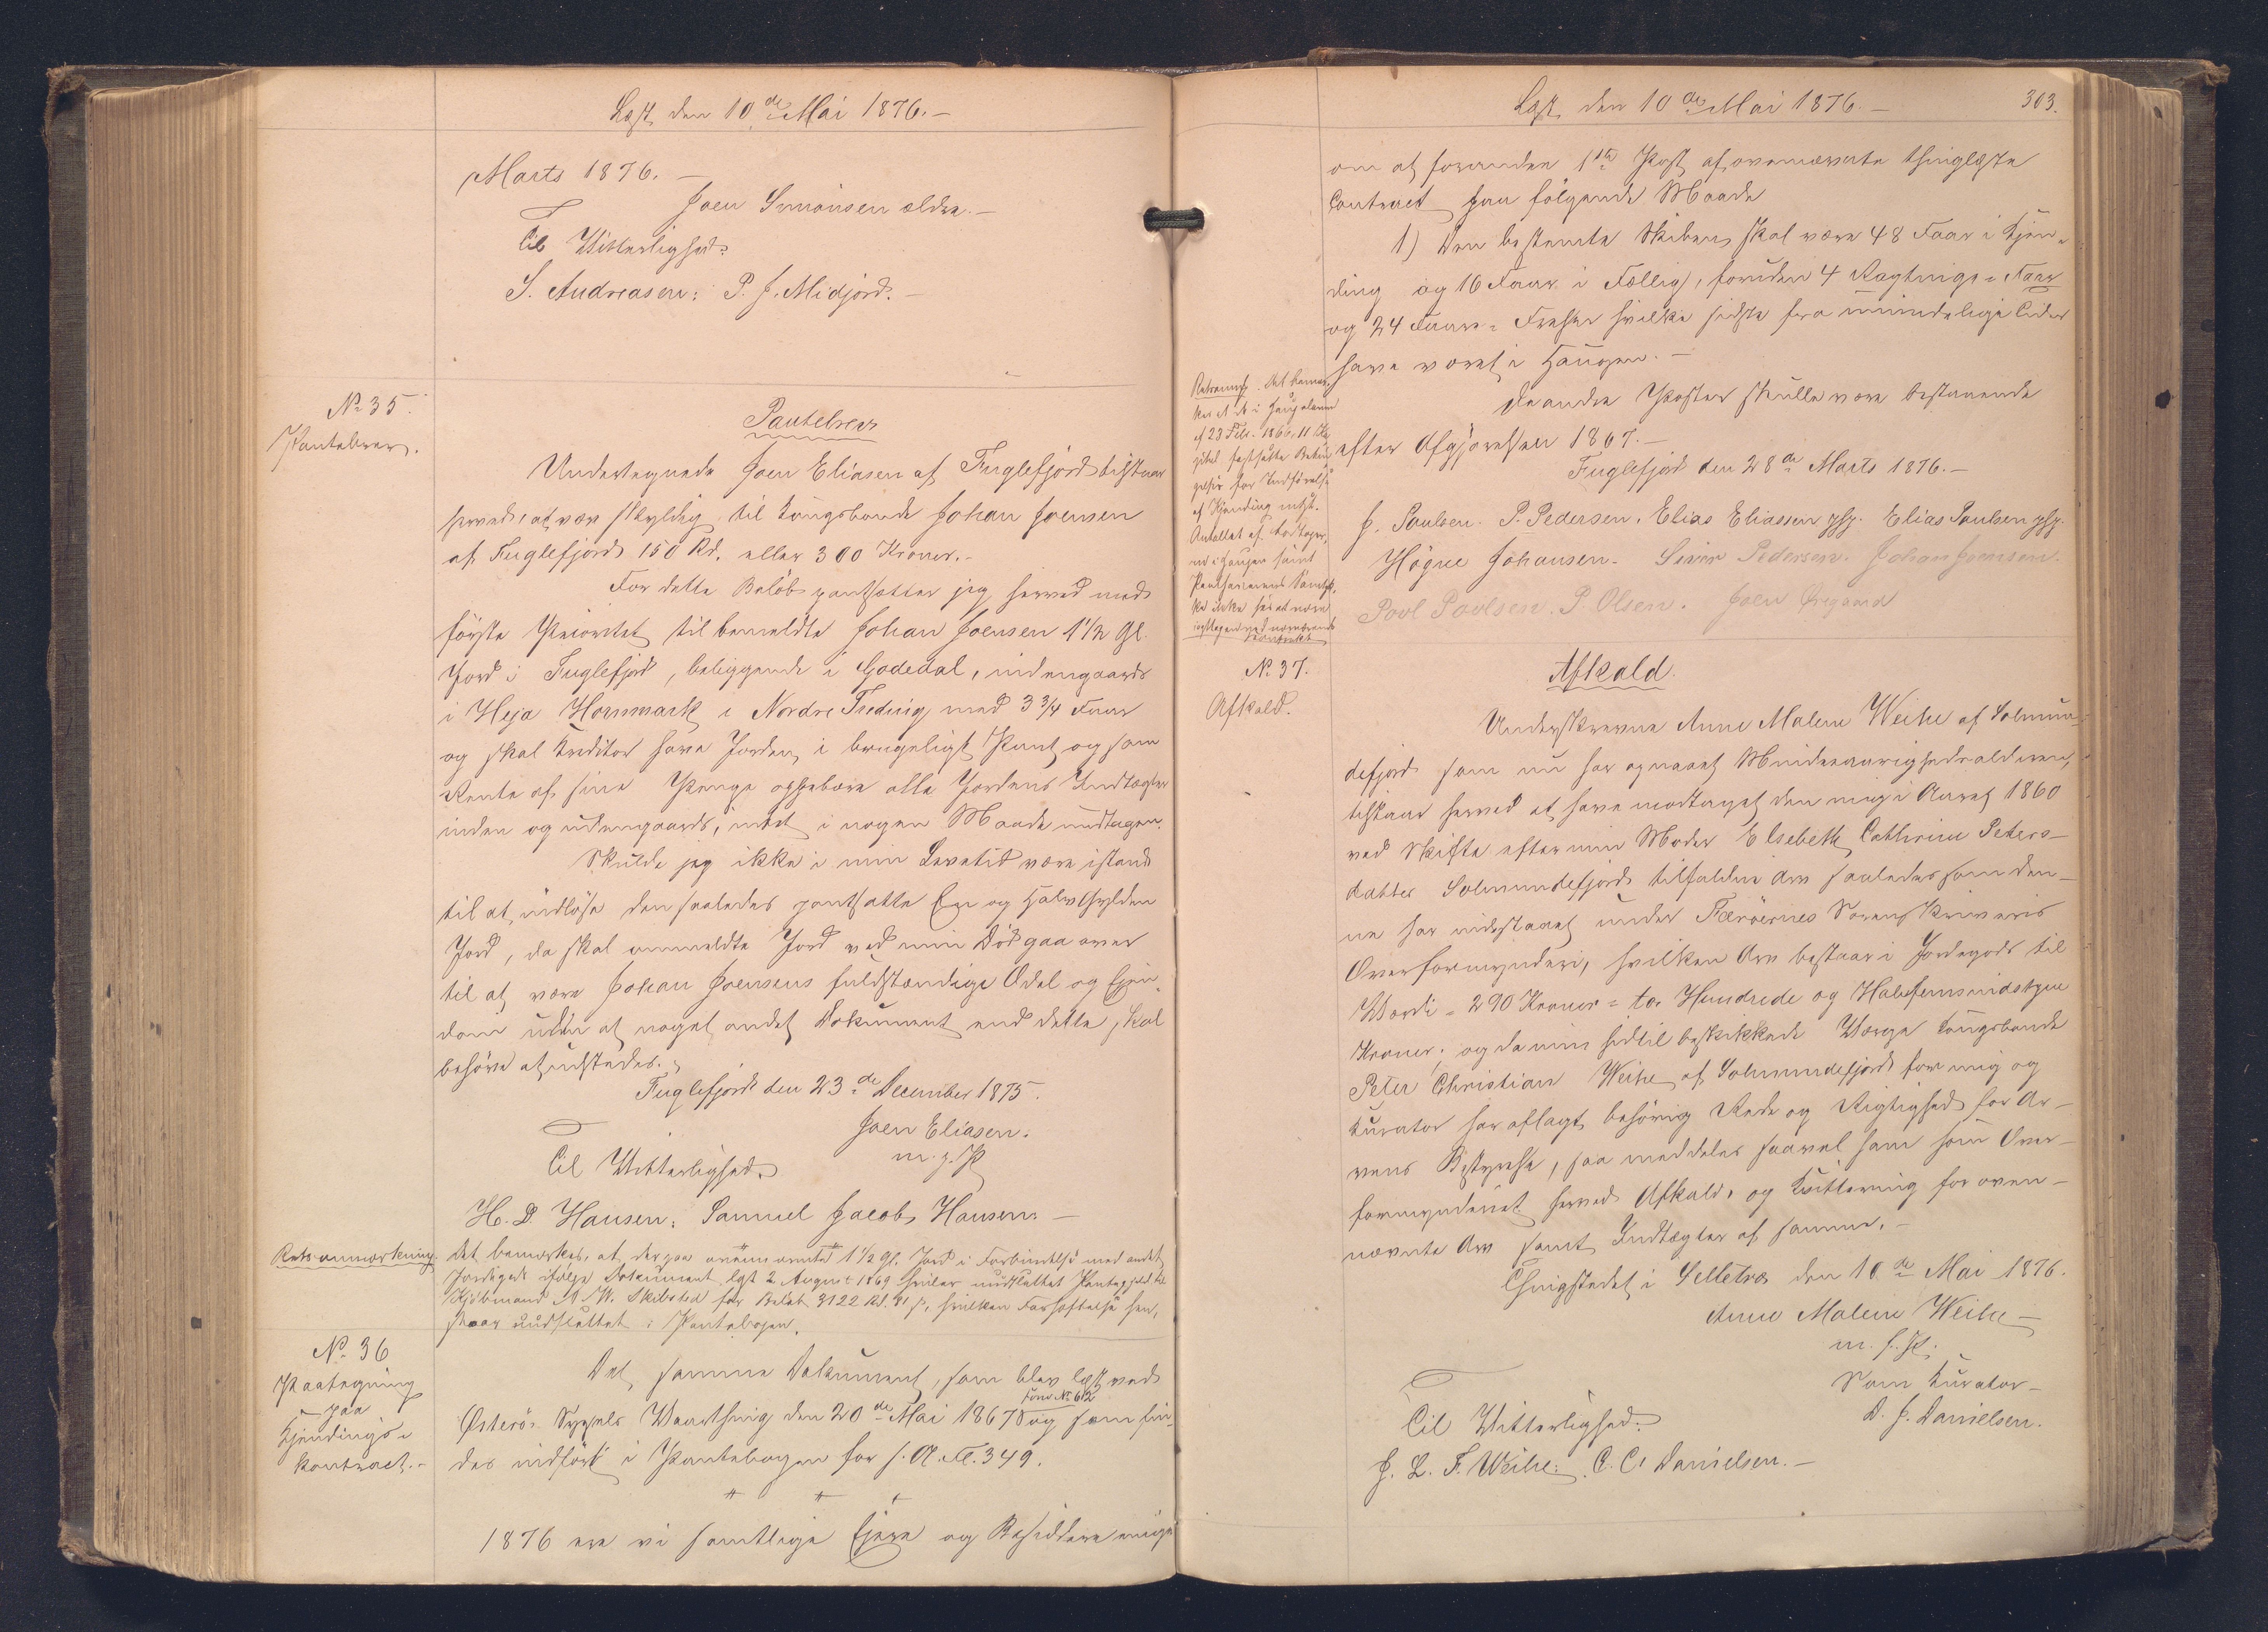 Læst den 10de Mai 1876.-
Marts 1876. -
Joen Simonsen ældre. -
Til Vitterlighed:
S. Andreasen: P. J. Midjord. -
No 35.
Pantebrev.
Pantebrev
Undertegnede Joen Eliasen af Fuglefjord tilstaar
herved at være skyldig til Kongsbonde Johan Joensen
af Fuglefjord 150 Rd. eller 300 Kroner. -
For dette Beløb pantsætter jeg herved med
første Prioritet til bemeldte Johan Joensen 1 1/2 Gl.
Jord i Fuglefjord, beliggende i Godedal, indengaards
i Heja Hornmark i Nordre Treding med 3 3/4 Faar
og skal Kreditor have Jorden i brugeligt Pant og som
Rente af sine Penge oppebære alle Jordens Indtægter
inden og udengaards, intet i nogen Maade undtagen.
Skulde jeg ikke i min Levetid være istand
til at indløse den saaledes pantsatte En og Halv Gylden
Jord, da skal anmeldte Jord ved min Død gaa over
til at være Johan Joensens fuldstændige Odel og Ejen-
dom uden at noget andet Dokument end dette skal
behøve at udstedes. -
Fuglefjord den 23de December 1875.
Joen Eliasen.
m. p. P.
Til Vitterlighed.
H. D Hansen: Samuel Jacob Hansen -
Retsanmærkning.
Det bemærkes, at der paa ovennævnte 1 1/2 Gl. Jord i Forbindelse med andet
Jordegods ifølge Dokument læst 2 August 1869 hviler uudslettet Pantegjæld til
Kjøbmand M. W. Skibsted for Beløb 3122 Rd. 81 s, hvilken Forhæftelse hen-
staar uudslettet i Pantebogen.
No 36
Paategning
paa
Kjendings-
kontract. -
Det samme Dokument, som blev læst ved
Østerø Syssels Vaarthing den 20de Mai 1867 som No 62 og som fin-
des indført i Pantebogen for s. A. Fl. 349.
1876 ere vi samtlige Ejere og Besiddere enige
Læst den 10de Mai 1876. -
303.
om at forandre 1ste Post af ovennævnte thinglæste
Contract paa følgende Maade
1) Den bestemte Skiben skal være 48 Faar i Kjen-
ding og 16 Faar i Fællig, foruden 4 Røgtnings-Faar
og 24 Faar- hvilke sidste fra umindelige Tider
have været i Haugen. -
De andre Poster skulle være bestaaende
efter Afgjørelsen 1867. -
Fuglefjord den 28de Marts 1876. -
J. Poulsen. P. Pedersen. Elias Eliassen Elias Poulsen
Høgne Johansen. Sivir Pedersen. Johan Joensen.
Povl Povlsen. P. Olsen. Joen Øregaard
Retsanm. Det bemær-
kes at de i Haugeloven
af 23 Febr. 1866, 11 Ca-
pitel fastsatte Betin-
gelser for Indførelse
af Kjending
Antallet af
i Haugen samt
Panthavernes Samtyk-
ke ikke sees at være
iagttagne ved nærværende
Kontrakt
No 37.
Afkald.
Afkald.
Underskrevne Anne Malene Weihe af Solmun-
defjord som nu har opnaaet Mindreaarighedsalderen,
tilstaar herved at have modtaget den mig i Aaret 1860
ved Skifte efter min Moder Elsebeth Cathrine Peters-
datter Solmundefjord tilfaldne Arv saaledes som den-
ne har indestaaet under Færøernes Sorenskriveris
Overformynderi, hvilken Arv bestaar i Jordegods til
Værdi = 290 Kroner = to Hundrede og Halvfemsindstyve
Kroner; og da min hidtil beskikkede Værge Kongsbonde
Peter Christian Weihe af Solmundefjord for mig og
Kurator har aflagt behørig Rede og Rigtighed for Ar-
vens Bestyrelse, saa meddeles saavel ham som Over-
formynderiet herved Afkald og Kvittering for oven-
nævnte Arv samt Indtægter af samme. -
Thingstedet i Selletræ den 10de Mai 1876.
Anne Malene Weihe -
m. f. P.
Som Kurator -
D. J. Danielsen.
Til Vitterlighed:
J. L. F. Weihe: C. C. Danielsen. -